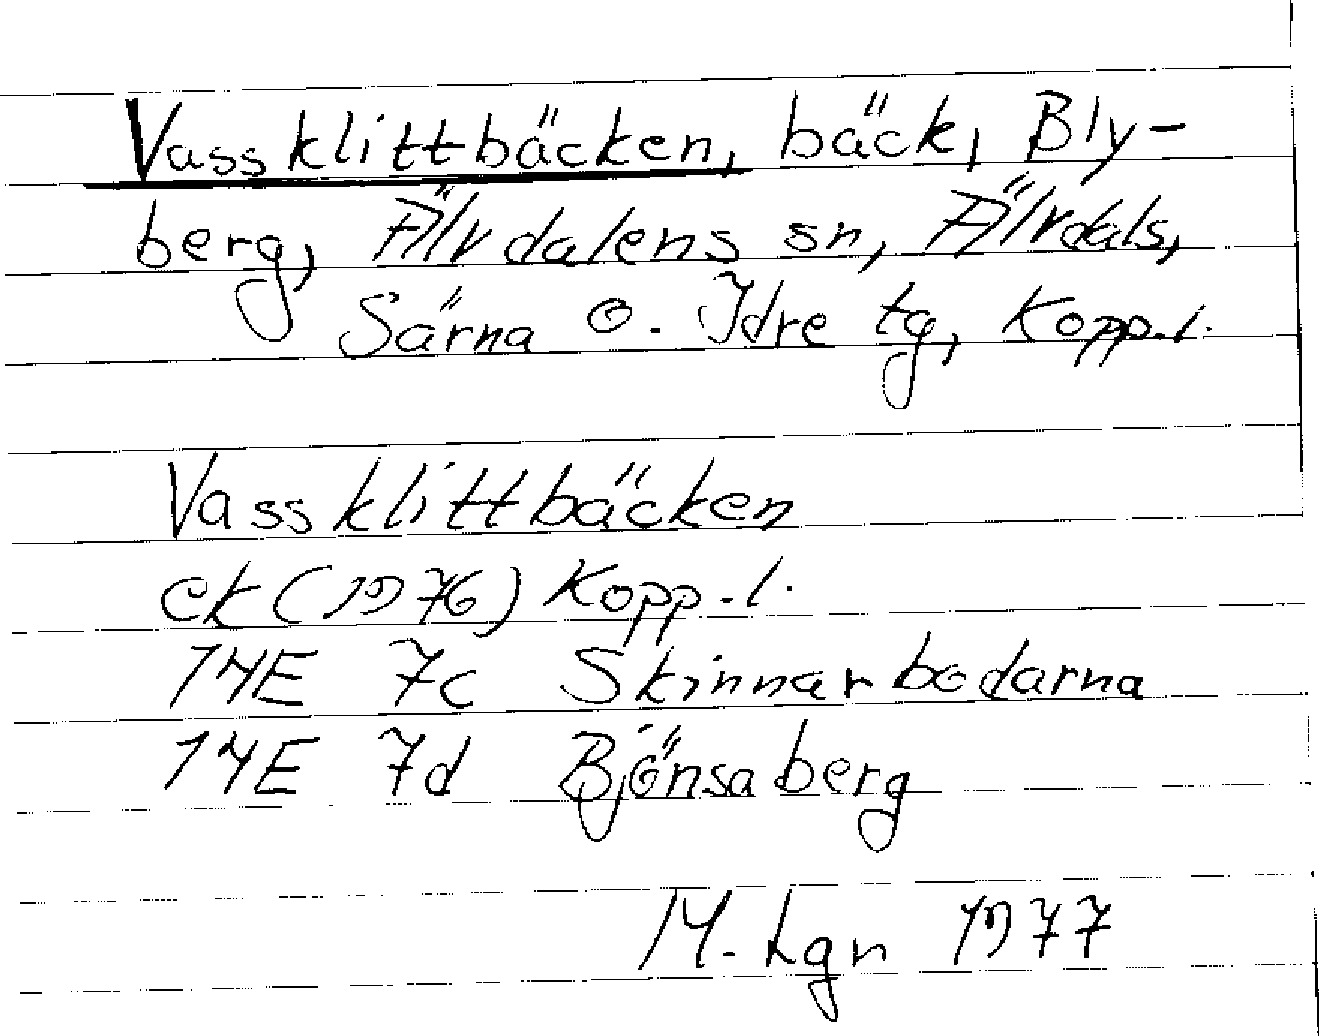 Vassklittbäcken, bäck, Bly-
berg, Älvdalens sn, Älvdals,
Särna o. Idre tg, Kopp.l.
Vassklittbäcken
ek (1976) Kopp.l.
14E 7c Skinnarbodarna
14E 7d Bjönsaberg
M. Lgn 1977